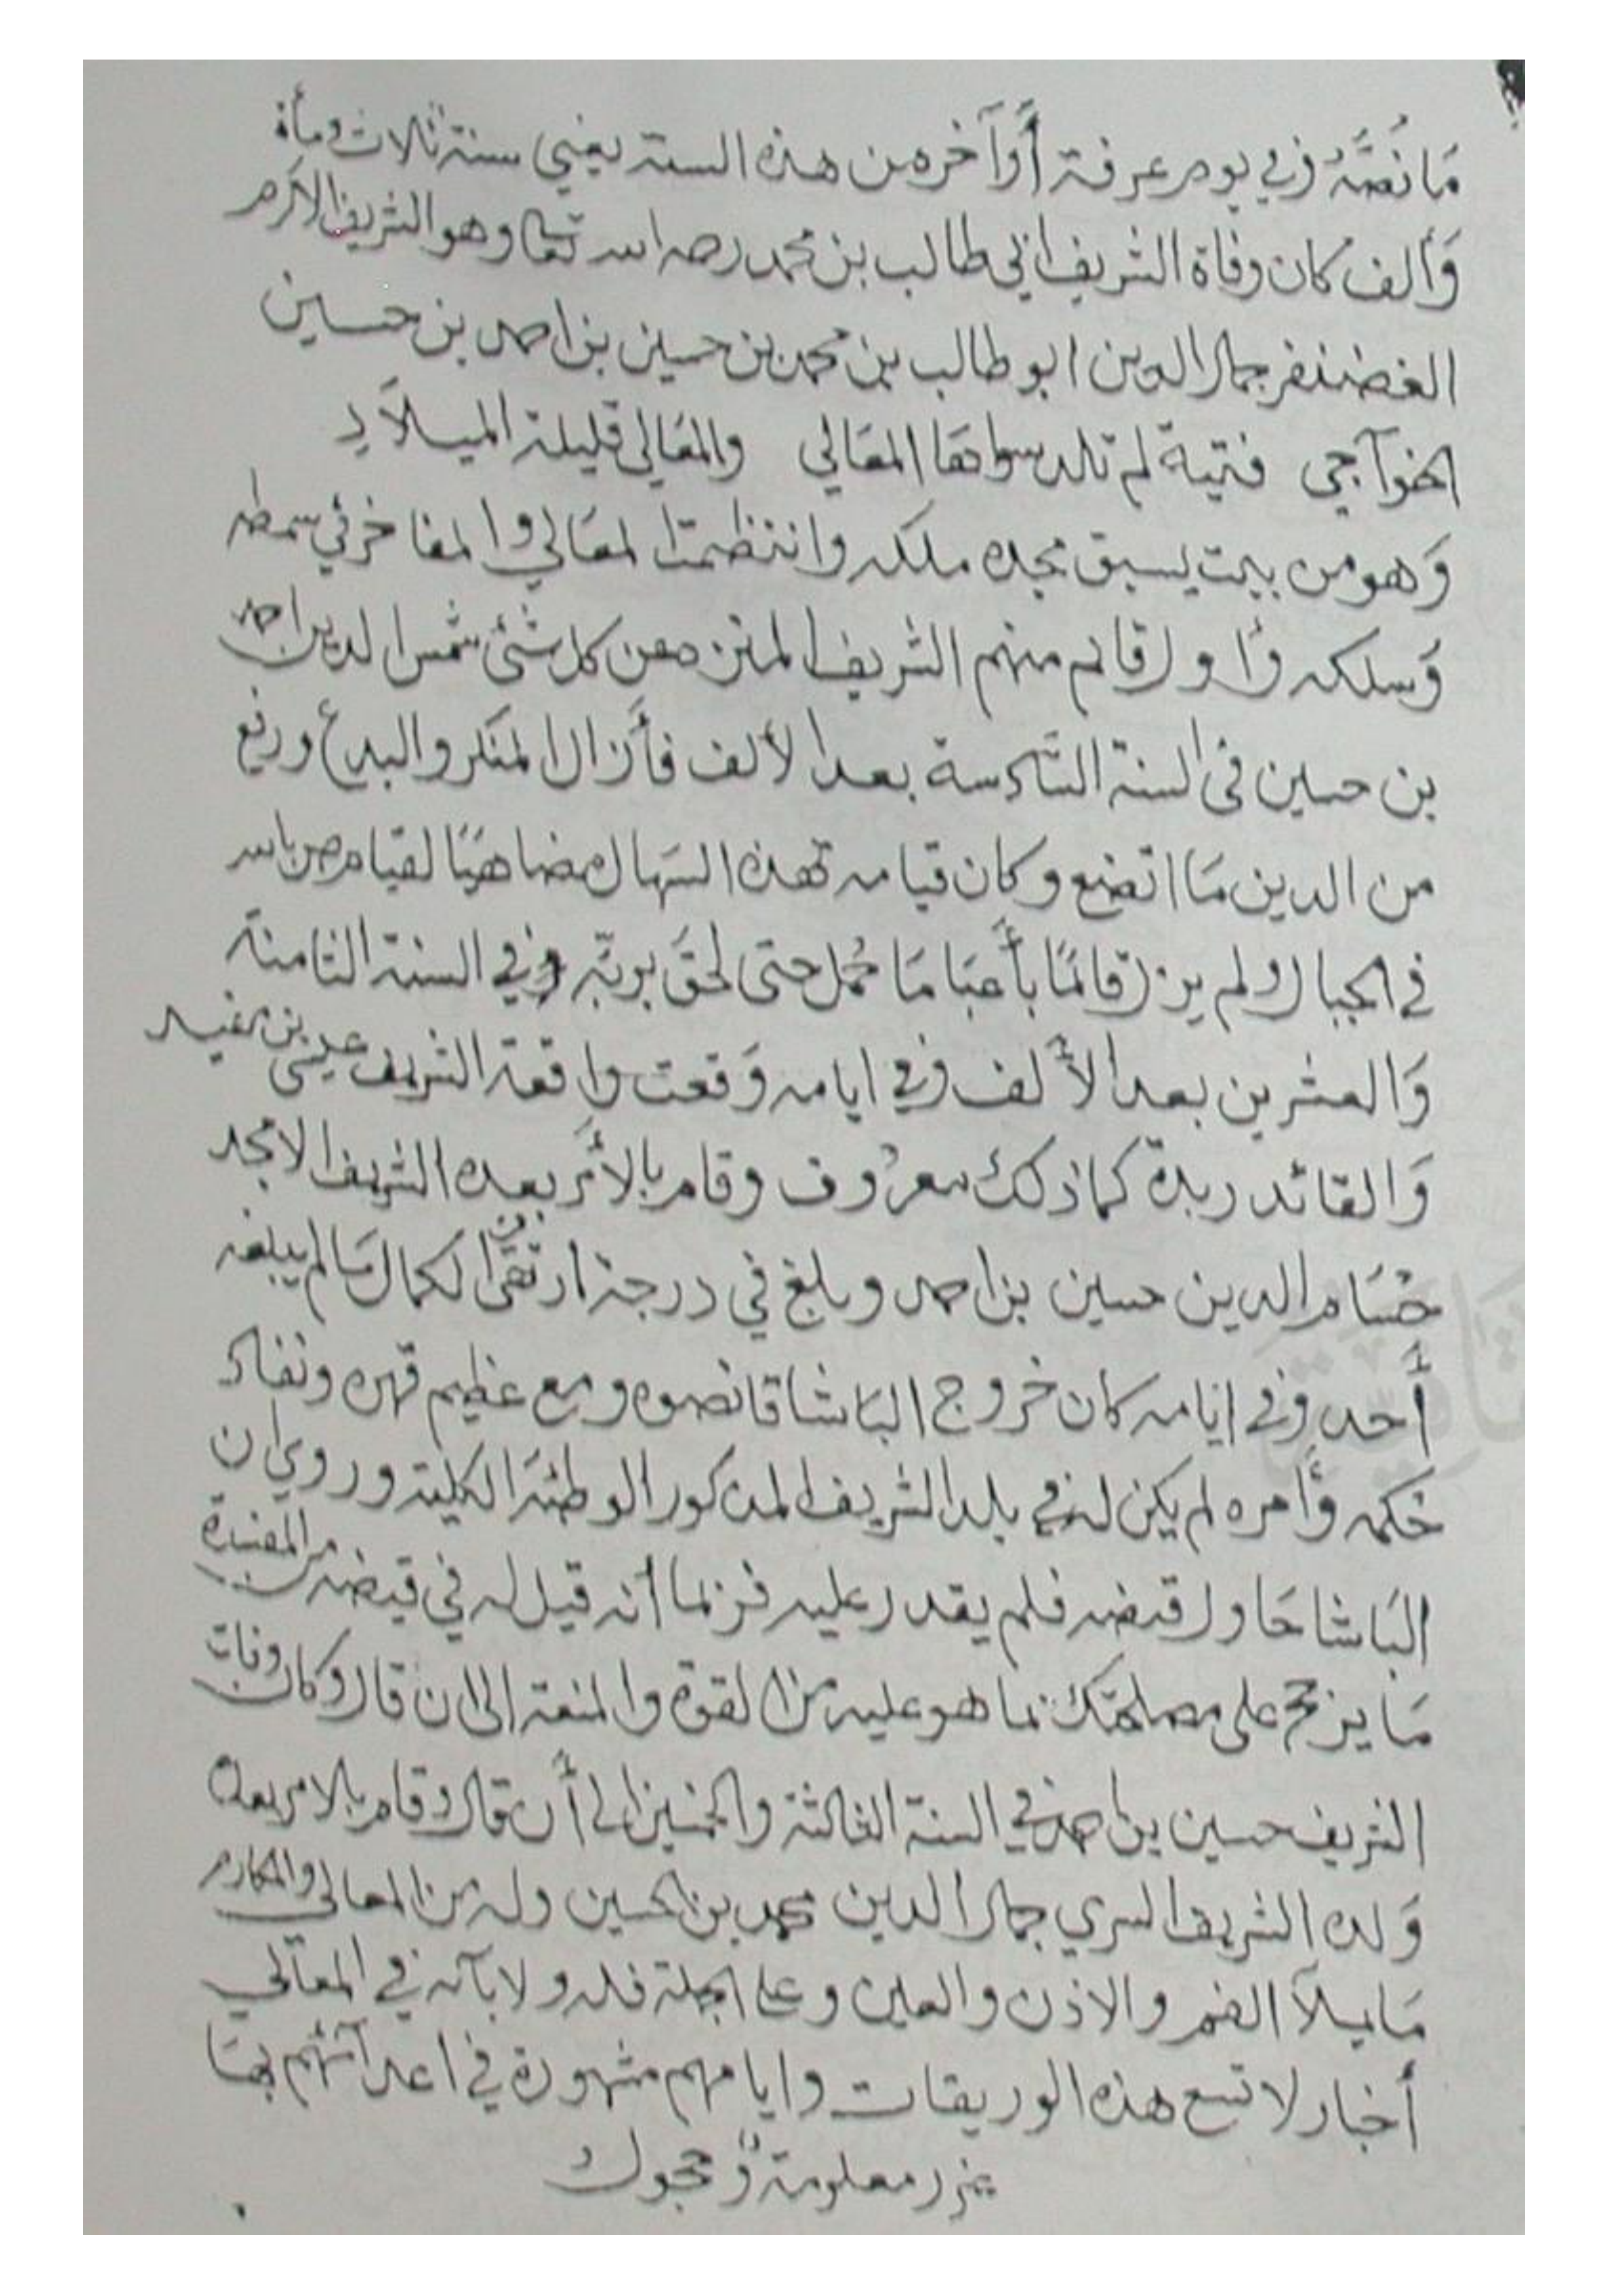 مَا نَصُّهُ وفي يوم عرفة أو آخره من هذه السنة يعني سنة ثلاث ومأة
وَألف كان وفاة الشريف أبي طالب بن محمد رحمه الله تعالى وهو الشريف الأكرم
الغضنفر جمال الدين ابو طالب بن محمد بن حسين بن احمد بن حسين
الخوآجي فتية لم تلد سواها المعَالي والمعَالي قليلة الميلآدِ
وَهو من بيت يسبق مجده ملكه وانتظمت المعَالي والمفاخر في سمطه
وَسلكه وأول قائم منهم الشريف المنزه عن كل شئ شمس الدين احمد
بن حسين في السنة السَّادسة بعد الألف فأزال المنكر والبدع ورفع
من الدين مَا اتضع وكان قيامه بهذه السهال مضاهيًا لقيام بالله
في الجبال ولم يزل قائمًا بأعبَا مَا حُمل حتى لحقَ بربّه وفي السنة الثامنة
وَالعشرين بعد الألف وفي ايامه وَقعت واقعة الشريف عيسى بن
وَالقائد ربدة كما ذلك معروف وقام بالأمر بعده الشريف الامجد
حُسَام الدين حسين بن احمد وبلغ في درجة ارتقى الكمال مَا لم يبلغه
أَحد وفي ايامه كان خروج البَاشا قانصوه ومع عظيم قهره ونفاد
حُكمه وأمره لم يكن له في بلد الشريف المذكور الوطئة الكلية وروي ان
البَاشا حَاول قبضه فلم يقدر عليه فربما أنه قيل له في قبضه من المفسدة
مَا يرجح على مصلحتك لما هو عليه من القوة والمنعة الى ان قال وكان وفات
الشريف حسين بن احمد في السنة الثالثة والخمسين الى أن قال وقام بالامر بعده
وَلده الشريف السري جمال الدين محمد بن الحسين وله من المعالي والمكارم
مَا يملآ الفم والاذن والعين وعلى الجملة فله ولابآئه في المعَالي
أخبار لا تسع هذه الوريقات وايامهم مشهورة في اعدآئهم بهَا
غرر معلومة وحجول